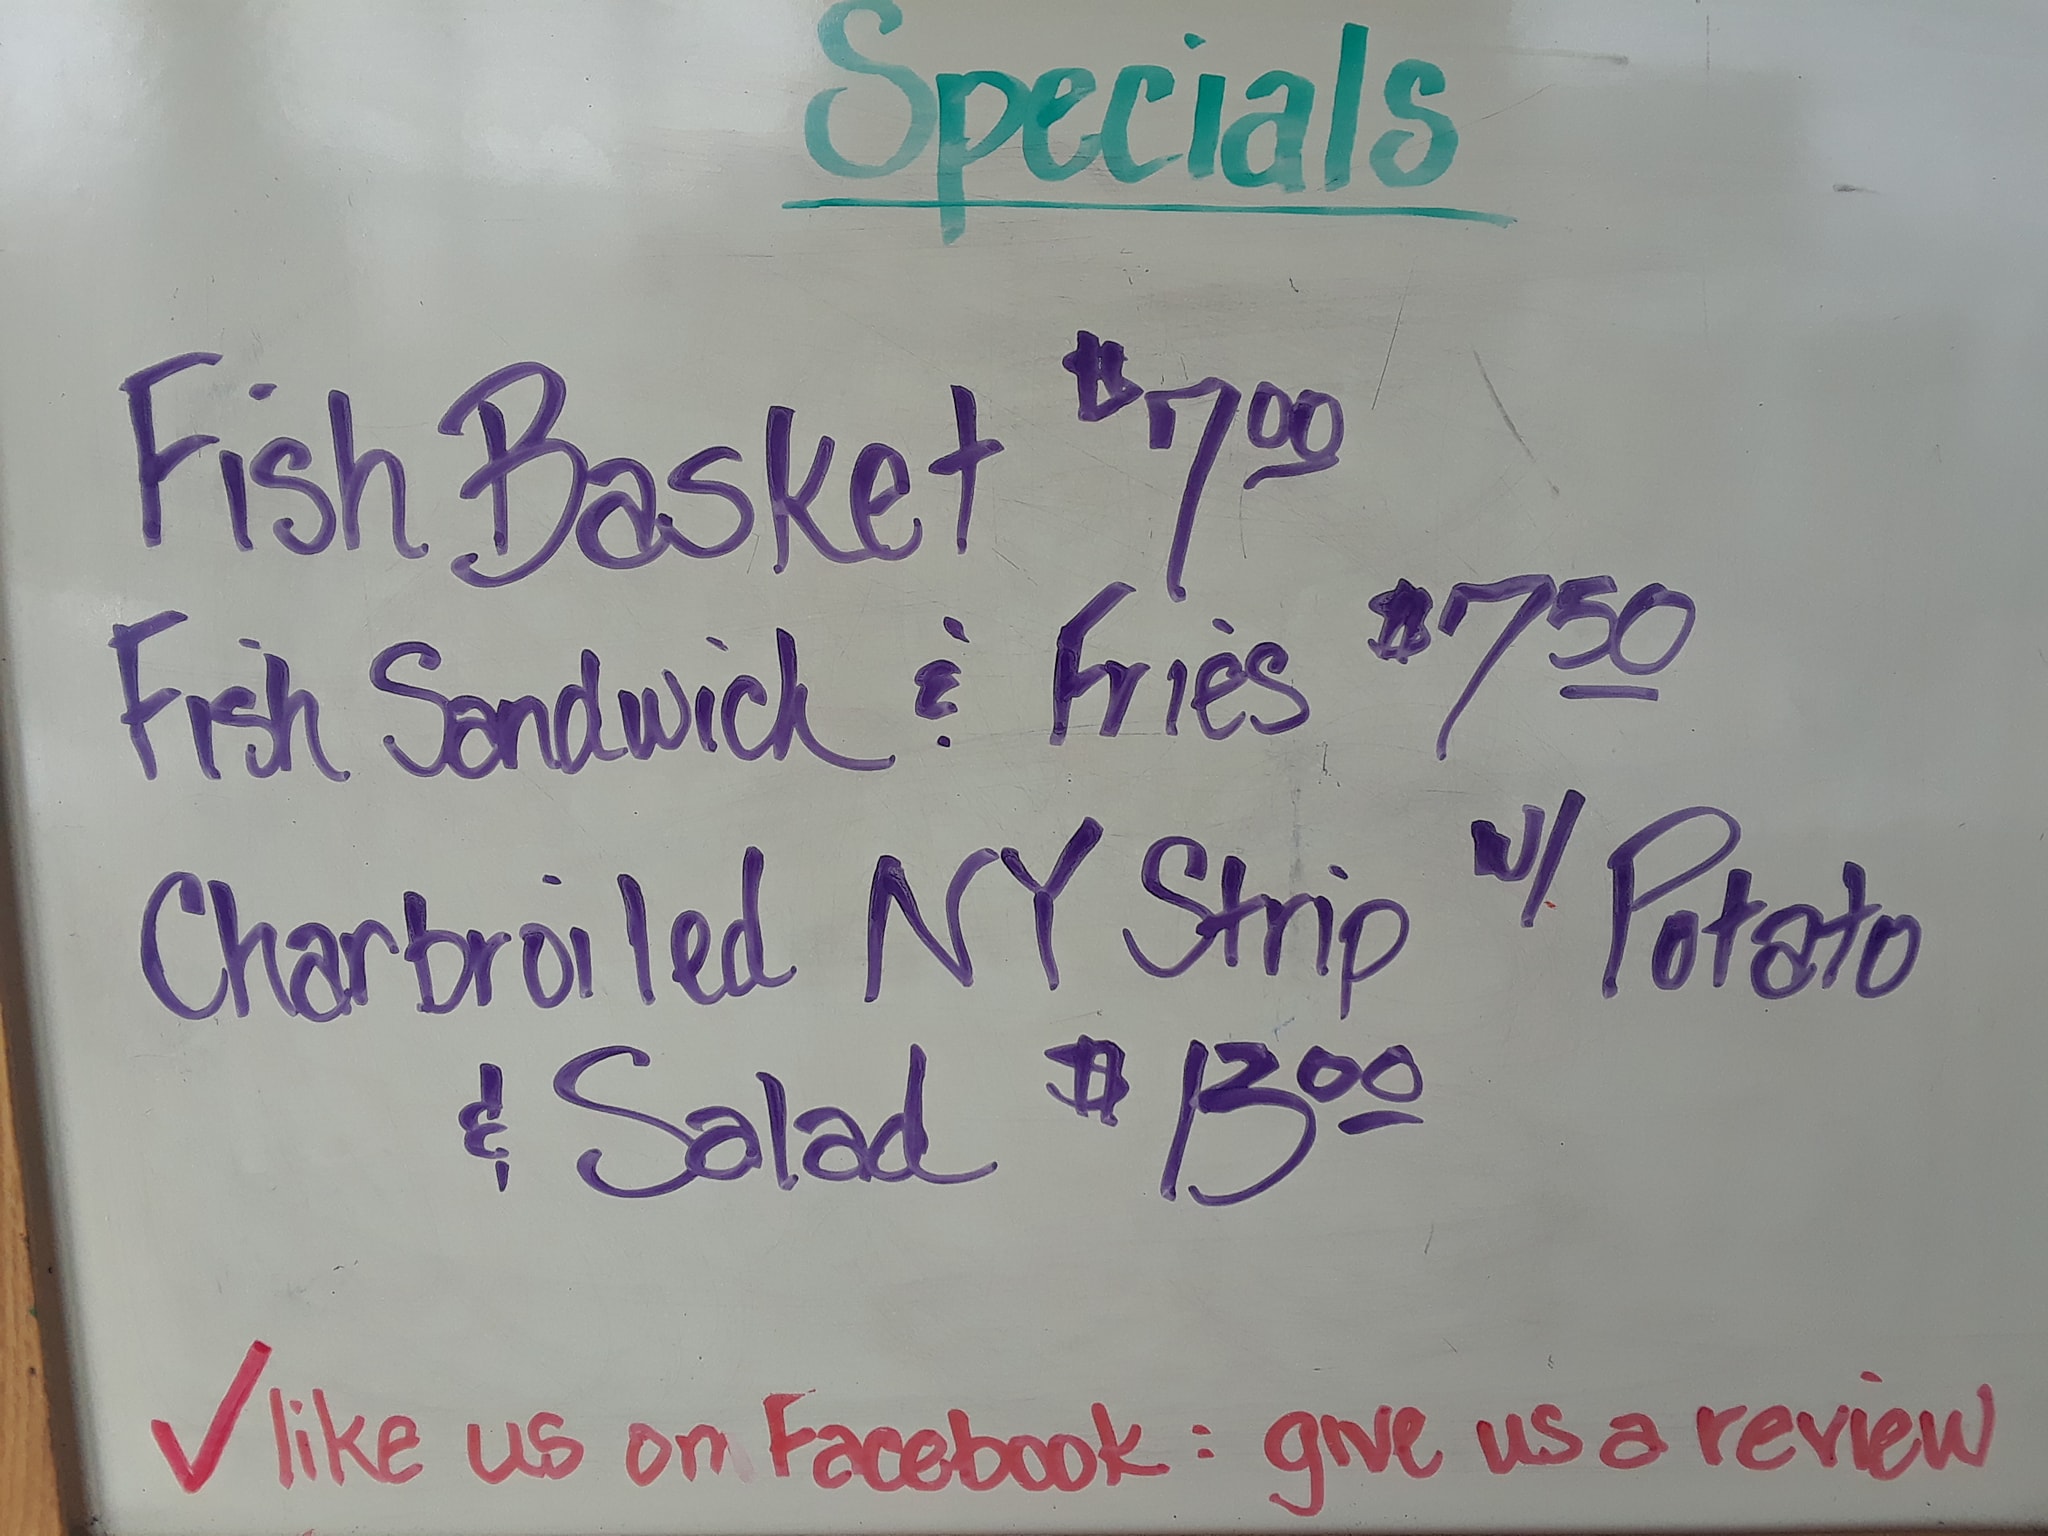 Specials
Fish Basket $7.00
Fish Sandwick & Fries $7.50
Charbroiled NY Strip w/ Potato
& Salad $13.00
✓ like us on Facebook : give us a review